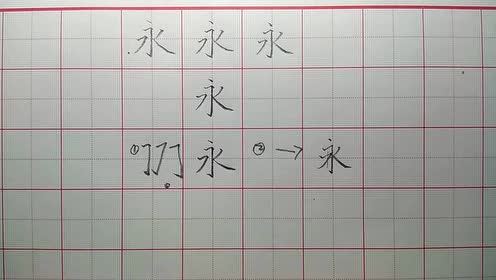 永 永 永
永
① 永 ② → 永